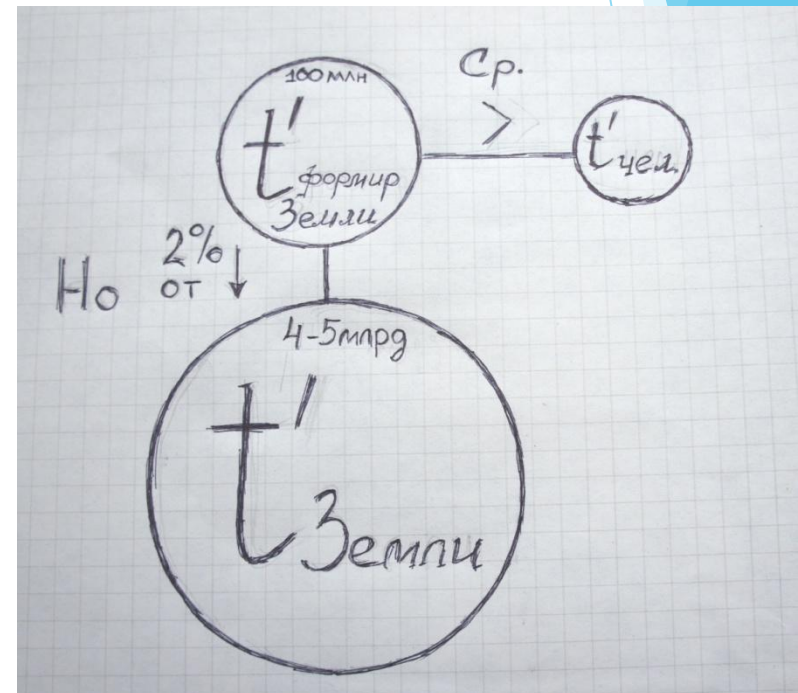 100 млн
t' формир
Земли
Ср.
>
t' чел.
Но 2%
от ↓
4-5млрд
t' Земли